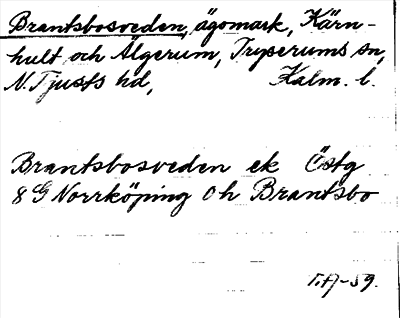 Brantsbosveden, ägomark, Kärn-
hult och Älgerum, Tryserums sn,
N. Tjusts hd, Kalm. l.
Brantsbosveden ek Östg
8 G Norrköping 0 h Brantsbo
T.A-59.